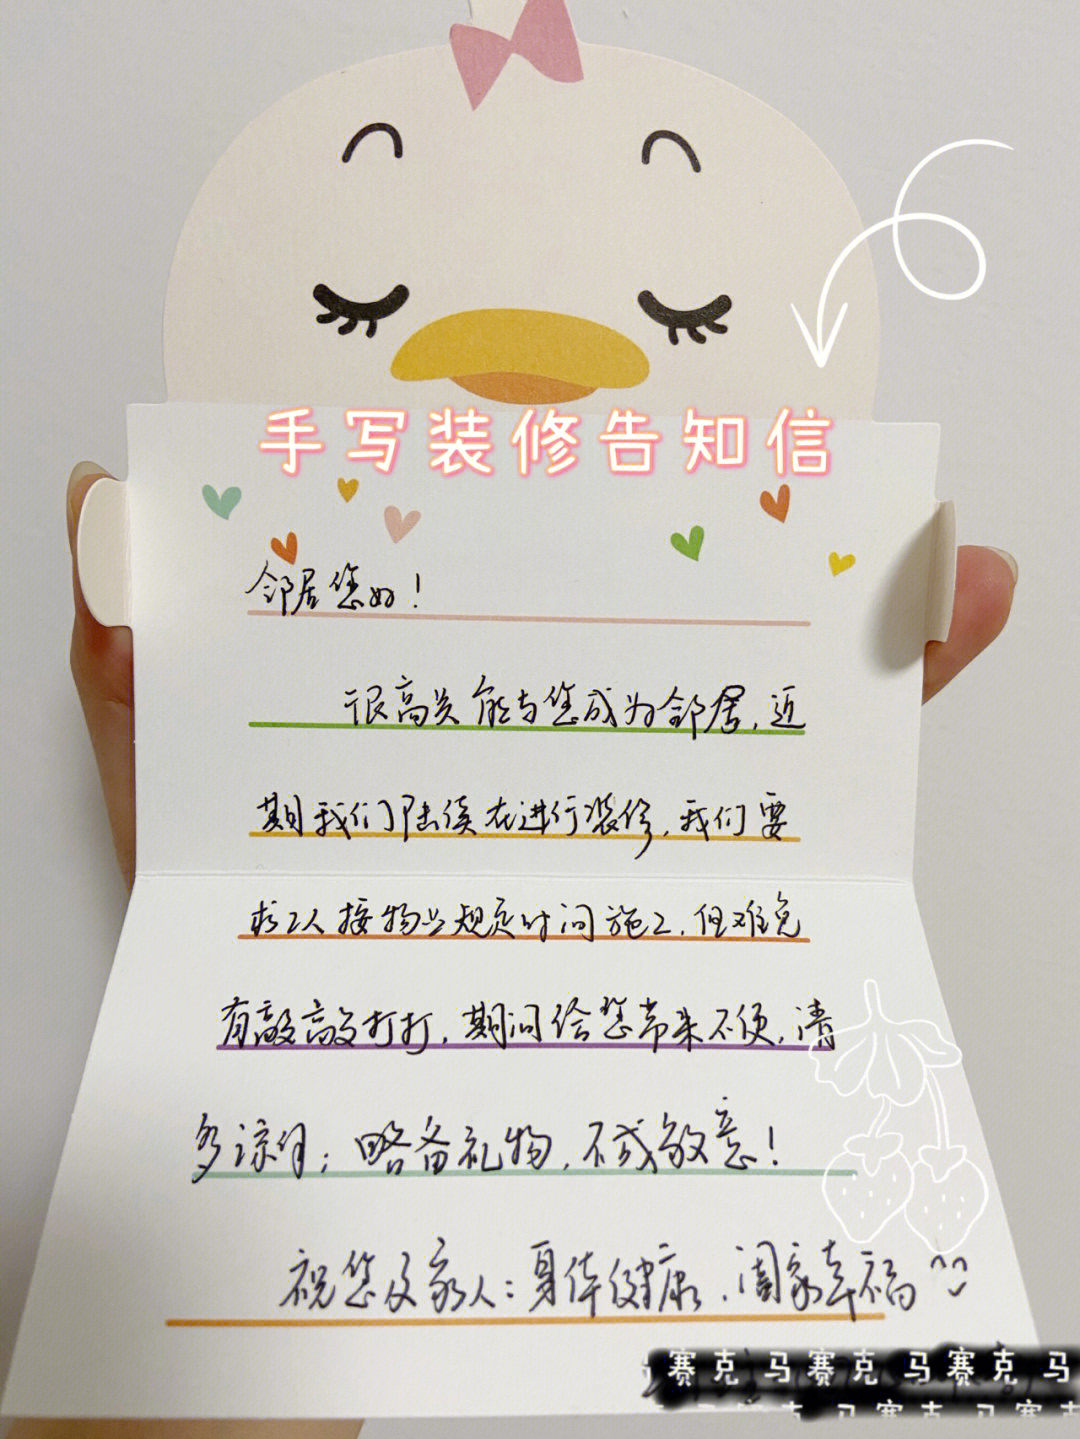 手写装修告知信
邻居您好!
很高兴能与您成为邻居,近
期我们陆续在进行装修,我们要
求工人按物业规定时间施工,但难免
有敲敲打打,期间给您带来不便,请
多谅解;略备礼物,不成敬意!
祝您及家人:身体健康,阖家幸福^^
赛克 马赛克 马赛克 马
马赛克 马赛克